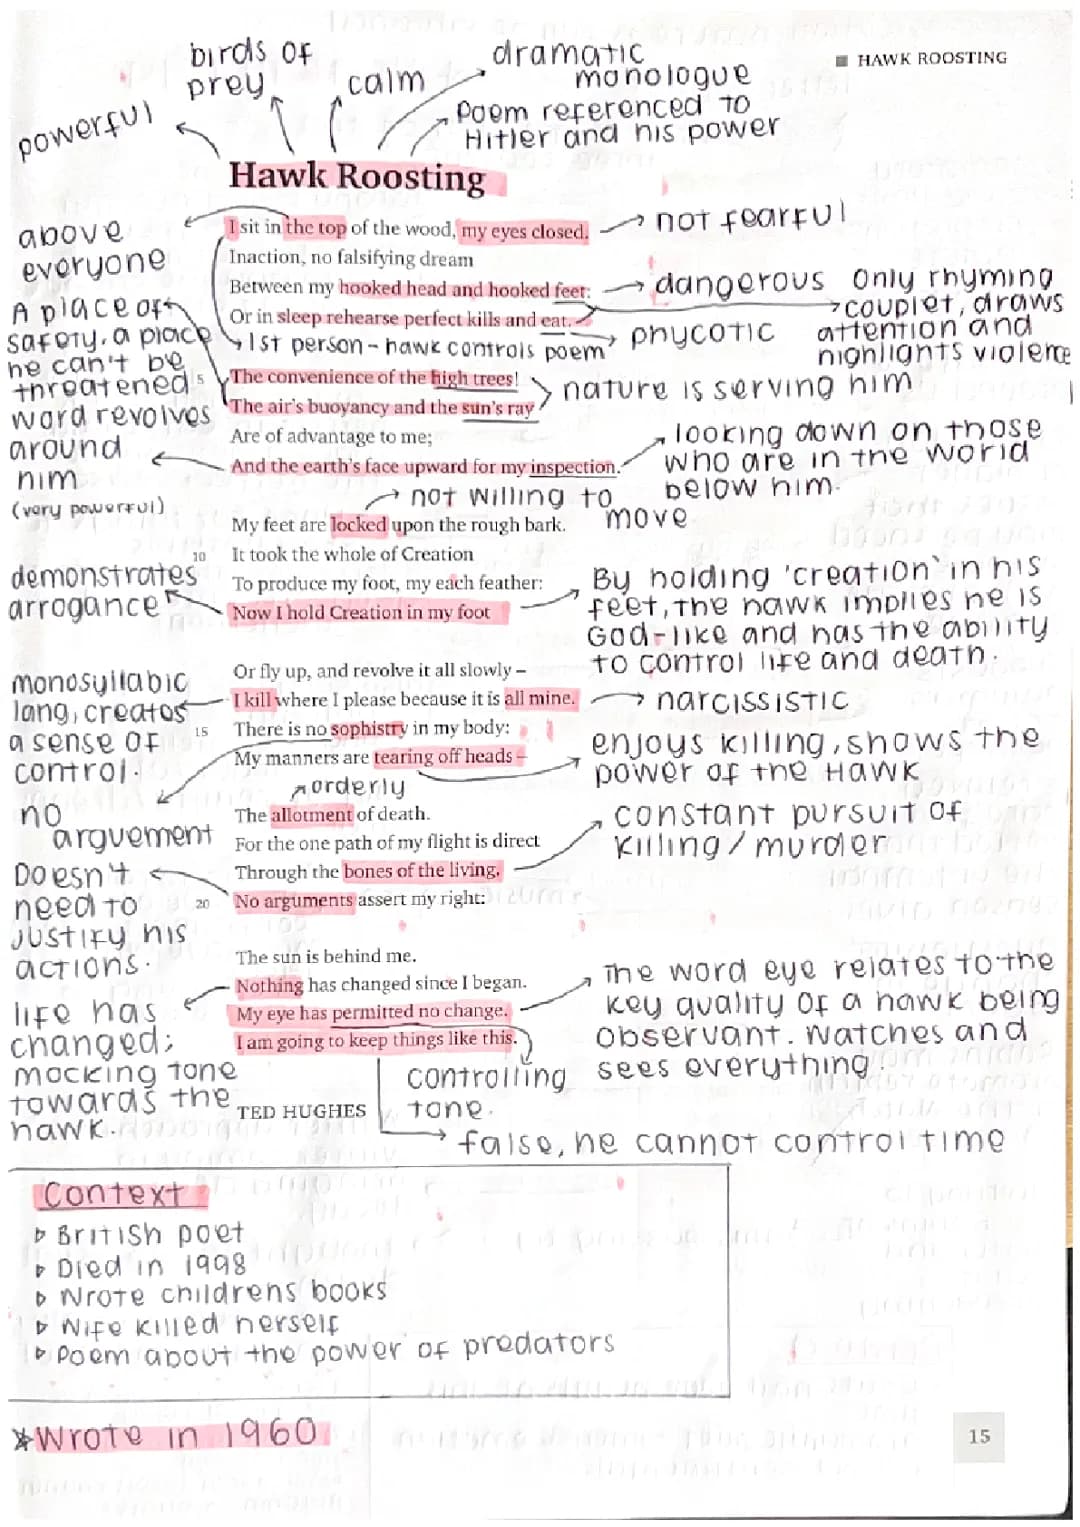 ■ HAWK ROOSTING
birds of
prey
calm
dramatic
monologue
powerful
Poem referenced to
Hitler and his power
Hawk Roosting
I sit in the top of the wood, my eyes closed.
→ not fearful
above
everyone
Inaction, no falsifying dream
Between my hooked head and hooked feet:
→ dangerous
Only rhyming
couplet, draws
attention and
highlights violence
Or in sleep rehearse perfect kills and eat.
→ phycotic
1st person - hawk controls poem
A place of
safety, a place
he can't be
threatened
5
The convenience of the high trees!
The air's buoyancy and the sun's ray
nature is serving him
Are of advantage to me;
And the earth's face upward for my inspection.
looking down on those
who are in the world
below him.
word revolves
around
him
(very powerful)
→ not willing to
move
My feet are locked upon the rough bark.
10
It took the whole of Creation
To produce my foot, my each feather:
Now I hold Creation in my foot
demonstrates
arrogance
By holding 'creation' in his
feet, the hawk implies he is
God-like and has the ability
to control life and death.
Or fly up, and revolve it all slowly –
I kill where I please because it is all mine.
→ narcissistic
monosyllabic
lang, creates
a sense of
control.
15
There is no sophistry in my body:
My manners are tearing off heads –
enjoys killing, shows the
power of the Hawk
orderly
no
arguement
The allotment of death.
For the one path of my flight is direct
Through the bones of the living.
constant pursuit of
killing/murder
20
No arguments assert my right:
Doesn't
need to
justify his
actions.
The sun is behind me.
Nothing has changed since I began.
My eye has permitted no change.
I am going to keep things like this.
The word eye relates to the
key quality of a hawk being
observant. Watches and
sees everything.
life has
changed;
mocking tone
towards the
hawk.
controlling
tone.
TED HUGHES
→ false, he cannot control time
Context
▹ British poet
▹ Died in 1998
▹ Wrote childrens books
▹ Wife killed herself
▹ Poem about the power of predators
*Wrote in 1960
15